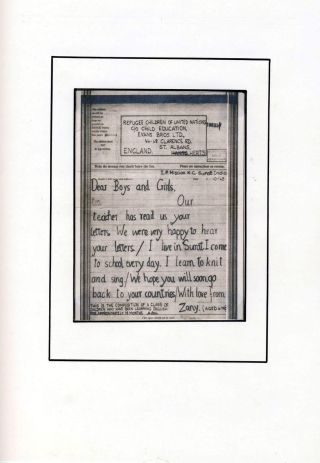 REFUGEE CHILDREN OF UNITED NATIONS
C/O CHILD EDUCATION,
EVANS BROS LTD.,
CLARENCE RD,
ST. ALBANS,
ENGLAND. HERTS
Write the message very clearly below this line.
I.P. Mission H.C. Surat India
Dear Boys and Girls,
Our
teacher has read us your
letters. We were very happy to hear
your letters. / I live in Surat. I come
to school every day. I learn to knit
and sing. / We hope you will soon go
back to your countries. / With love from
THIS IS THE COMPOSITION OF A CLASS OF
CHILDREN WHO HAVE BEEN LEARNING ENGLISH
FOR APPROXIMATELY 18 MONTHS